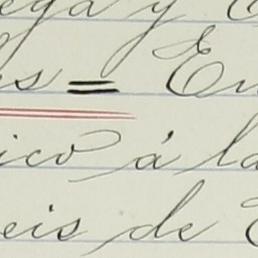 ega y
es = En
ico á la
eis de